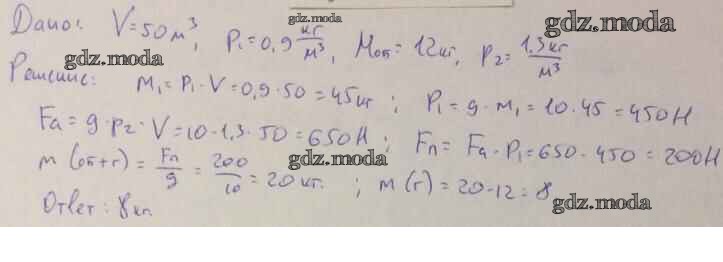 gdz.moda
Дано: V=50м³, P₁=0,9 кг/м³, Mоб=12кг, P₂=1,3кг/м³
gdz.moda gdz.moda
Решение: M₁=P₁·V=0,9·50=45кг; P₁=g·M₁=10·45=450Н
Fa=g·P₂·V=10·1,3·50=650Н; Fп=Fa·P₁=650·450=200Н
m(об+г)=Fп/g=200/10=20кг. ; m(г)=20-12=8
gdz.moda
Ответ: 8кг.
gdz.moda